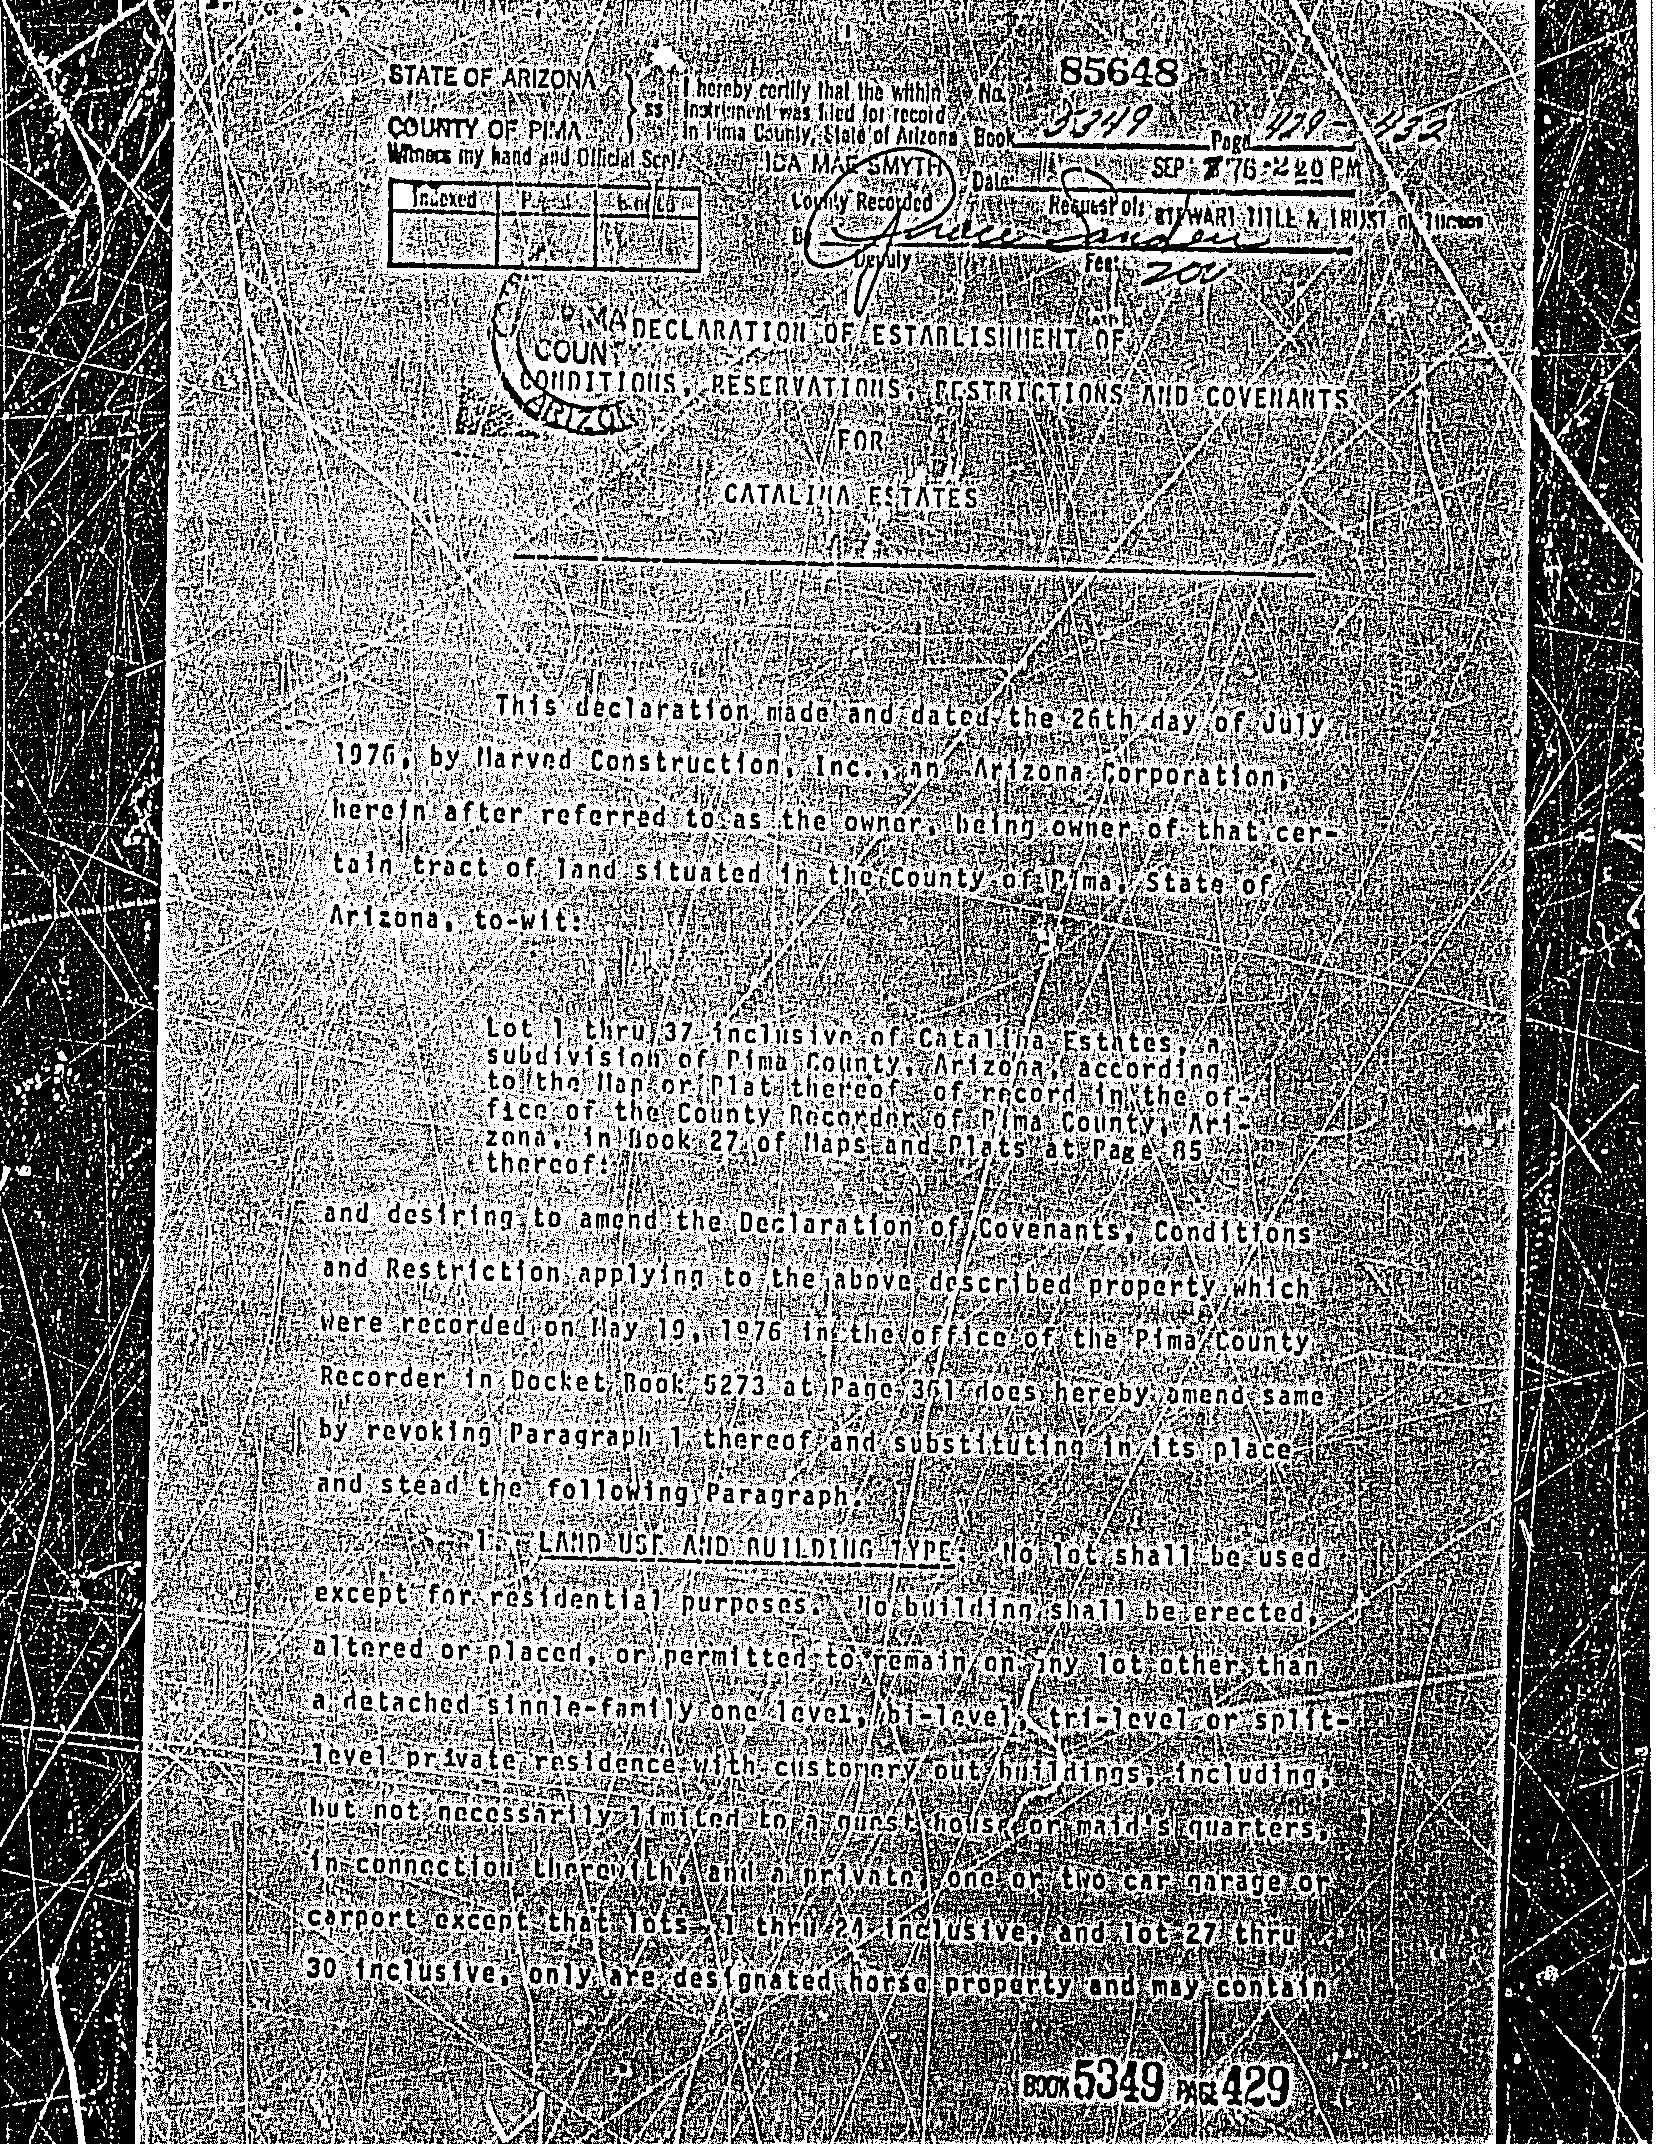 STATE OF ARIZONA
COUNTY OF PIMA
ss
I hereby certify that the within
Instrument was filed for record
in Pima County, State of Arizona
No. 85648
Book 5349 Page 429-432
Witness my hand and Official Seal
IDA MAE SMYTH
County Recorded
Date SEP 76-2 20 PM
Request of: STEWART TITLE & TRUST of Tucson
Indexed
By
Deputy
Fee:
PIMA
COUNTY
DECLARATION OF ESTABLISHMENT OF
CONDITIONS, RESERVATIONS, RESTRICTIONS AND COVENANTS
FOR
CATALINA ESTATES
This declaration made and dated the 26th day of July
1976, by Marved Construction, Inc., an Arizona Corporation,
herein after referred to as the owner, being owner of that cer-
tain tract of land situated in the County of Pima, State of
Arizona, to-wit:
Lot 1 thru 37 inclusive of Catalina Estates, a
subdivision of Pima County, Arizona, according
to the Map or Plat thereof of record in the of-
fice of the County Recorder of Pima County, Ari-
zona, in Book 27 of Maps and Plats at Page 85
thereof:
and desiring to amend the Declaration of Covenants, Conditions
and Restriction applying to the above described property which
were recorded on May 19, 1976 in the office of the Pima County
Recorder in Docket Book 5273 at Page 361 does hereby amend same
by revoking Paragraph 1 thereof and substituting in its place
and stead the following Paragraph.
1. LAND USE AND BUILDING TYPE: No lot shall be used
except for residential purposes. No building shall be erected,
altered or placed, or permitted to remain on any lot other than
a detached single-family one level, bi-level, tri-level or split-
level private residence with customery out buildings, including,
but not necessarily limited to a guest house or maid's quarters,
in connection therewith, and a private, one or two car garage or
carport except that lots 1 thru 24 inclusive, and lot 27 thru
30 inclusive, only are designated horse property and may contain
BOOK 5349 PAGE 429